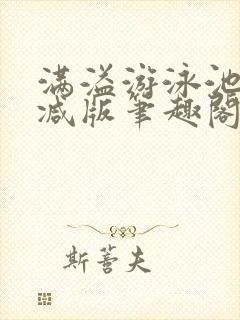 满溢游泳池
减版笔趣阁
斯蕾夫